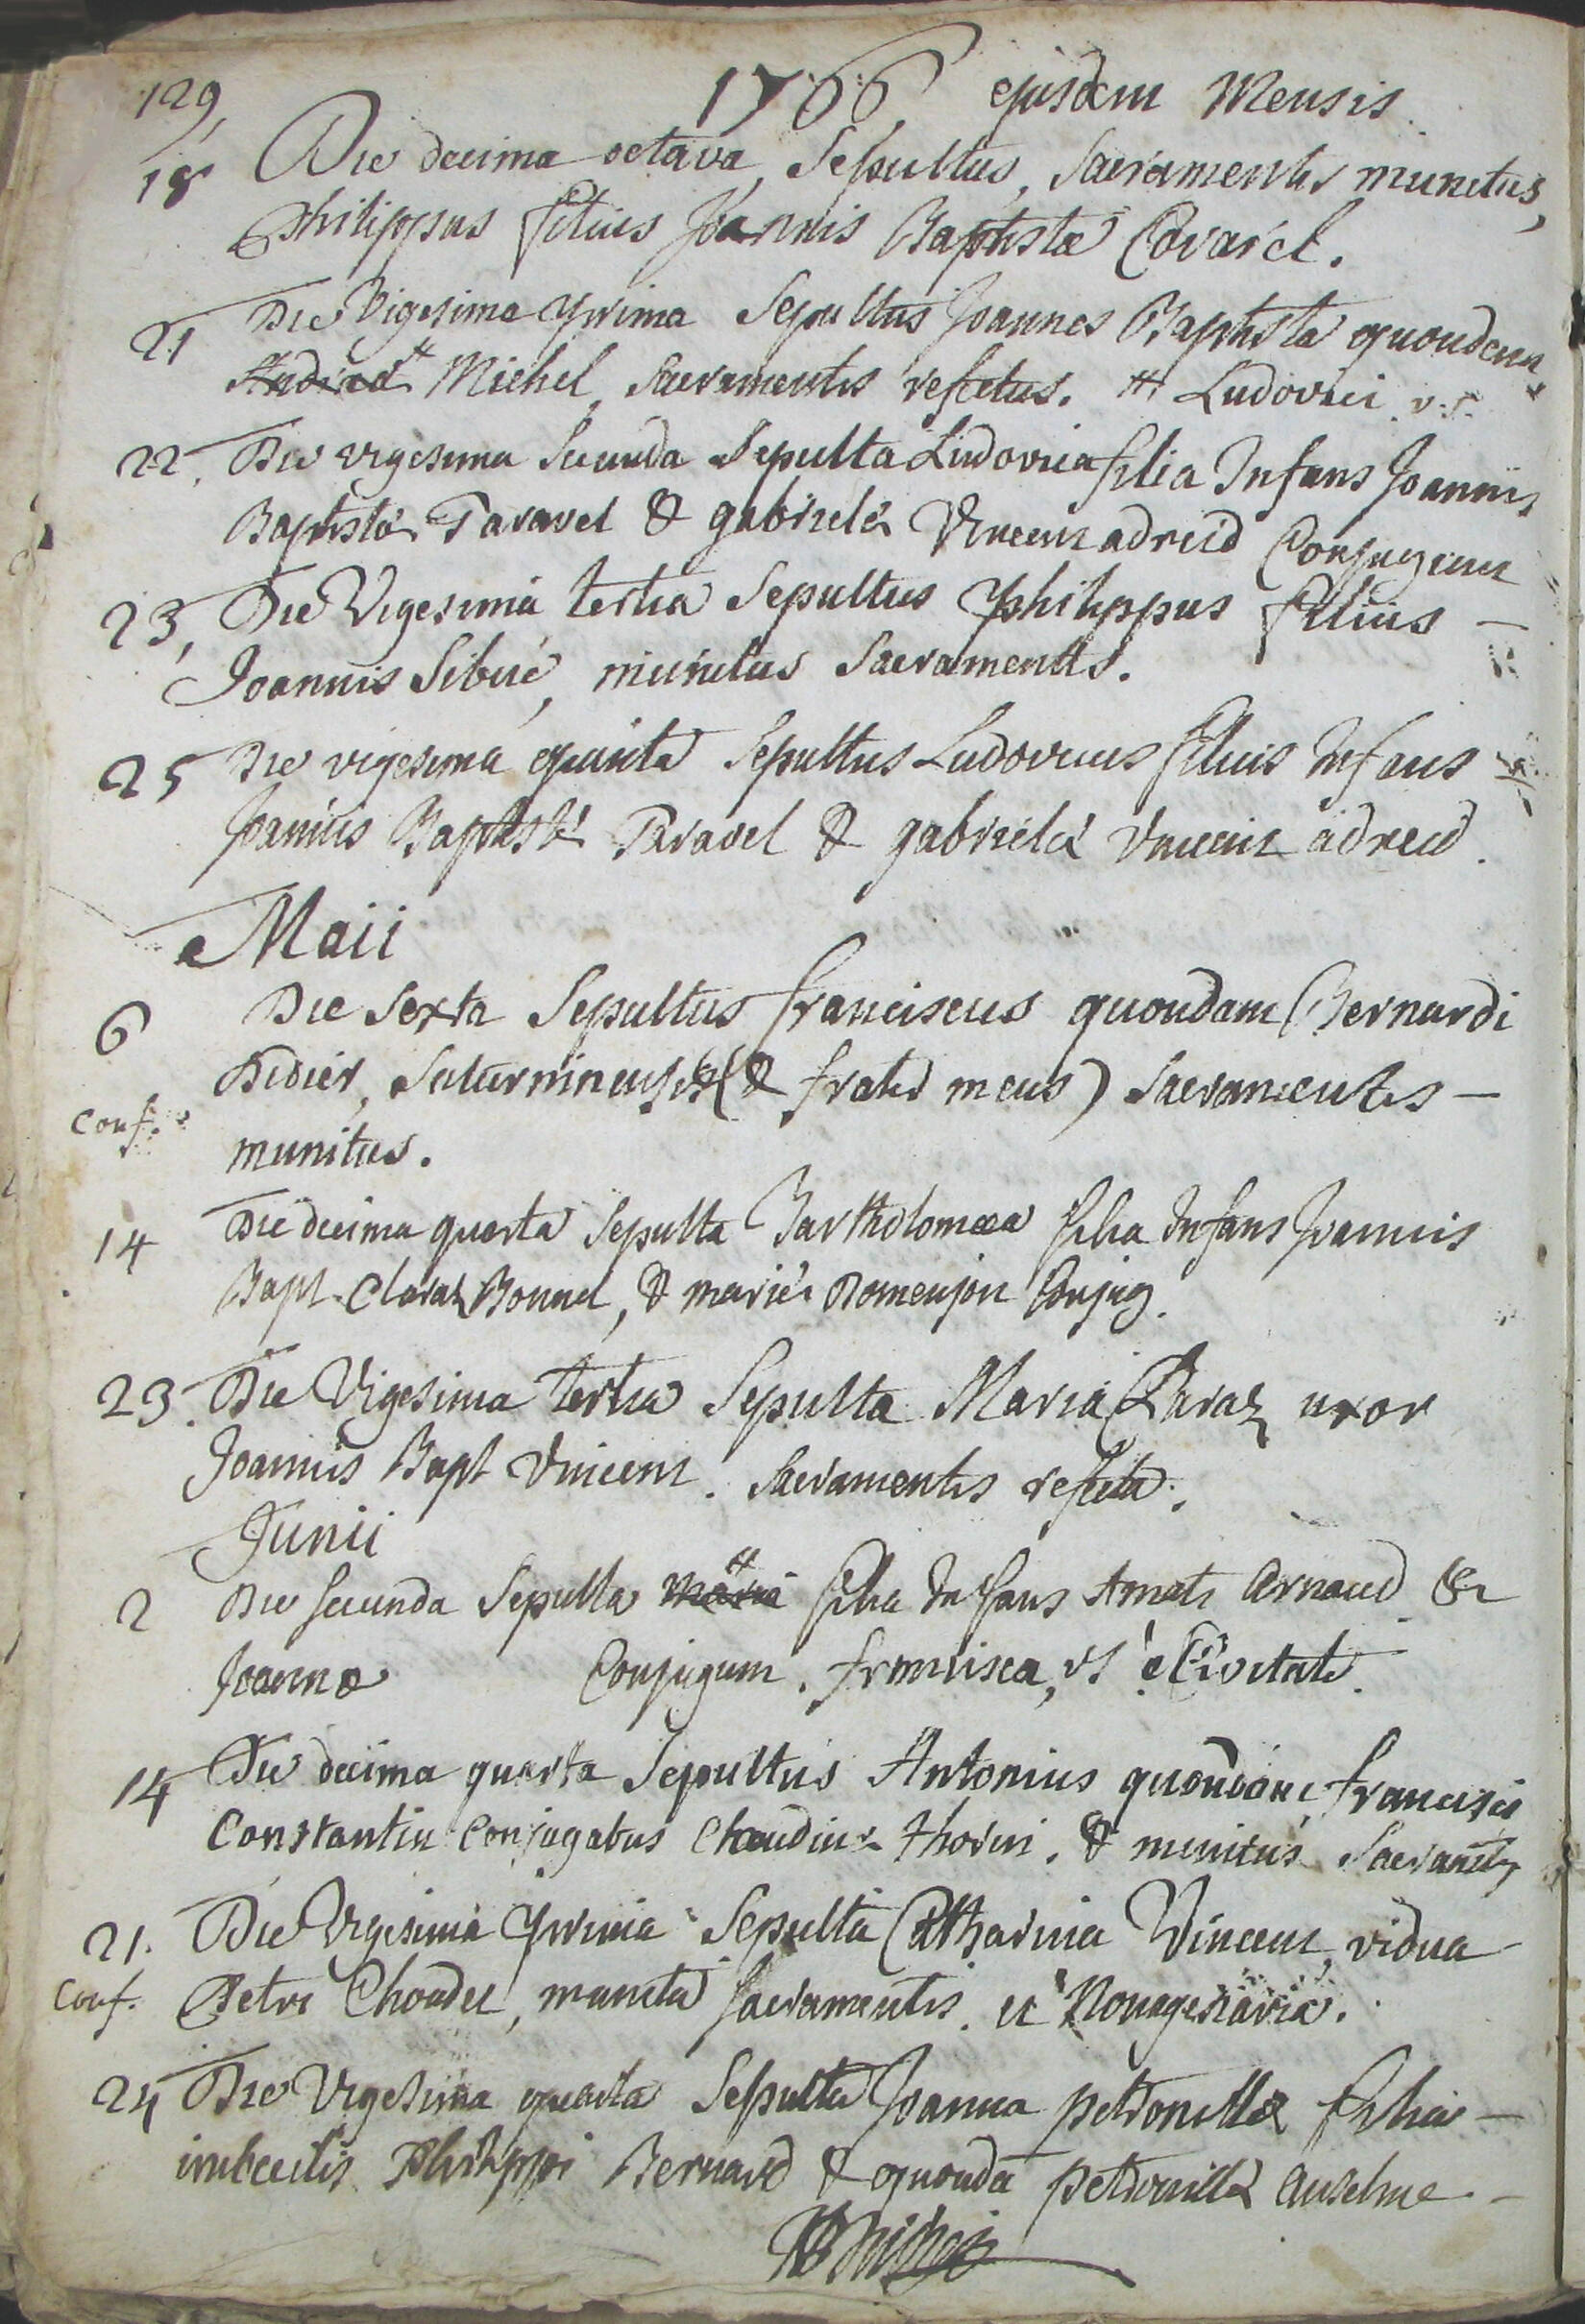 129, 1766 ejusdem Mensis.
18 Die decima octava, Sepultus, Sacramentis munitus,
Philippus filius Joannis Baptistæ Covarel.
21 Die Vigesima prima Sepultus Joannes Baptista quondam
Andreæ # Michel, Sacramentis refectus. # Ludovici v.s.
22. Die vigesima Secunda Sepulta Ludovica filia Infans Joannis
Baptistæ Taravel & gabrielæ Vincenz adreid Conjugum
23, Die Vigesima tertia Sepultus philippus filius —
Joannis Sibué, munitus Sacramentis.
25 Die vigesima quinta Sepultus Ludovicus filius Infans
Joannis Baptistæ Taravel & gabrielæ Vincenz adreid.
Maii
6 Die Sexta Sepultus franciscus quondam Bernardi
Didier, Saturninensis (& frater meus) Sacramentis —
Conf.
munitus.
14 Die decima quarta Sepulta Bartholomæa filia Infans Joannis
Bapt. Claraz Bonnel, & mariæ Domenjon Conjug.
23. Die Vigesima tertia Sepulta Maria Claraz uxor
Joannis Bapt Vincenz. Sacramentis refecta.
Junii
2 Die secunda Sepulta maria # filia Infans Amati Arnaud &
Joannæ Conjugum. francisca, vs è Civitate.
14 Die decima quarta Sepultus Antonius quondam francisci
Constantin Conjugatus Claudinæ thorin. & munitus Sacramtis
21. Die Vigesima prima Sepulta Catharina Vincenz, vidua
Conf. Petri Choudet, munita sacramentis. et Nonagenaria.
24 Die Vigesima quarta Sepulta Joanna petronilla filia —
imbecilis Philippi Bernard & quondā petronillæ anselme. —